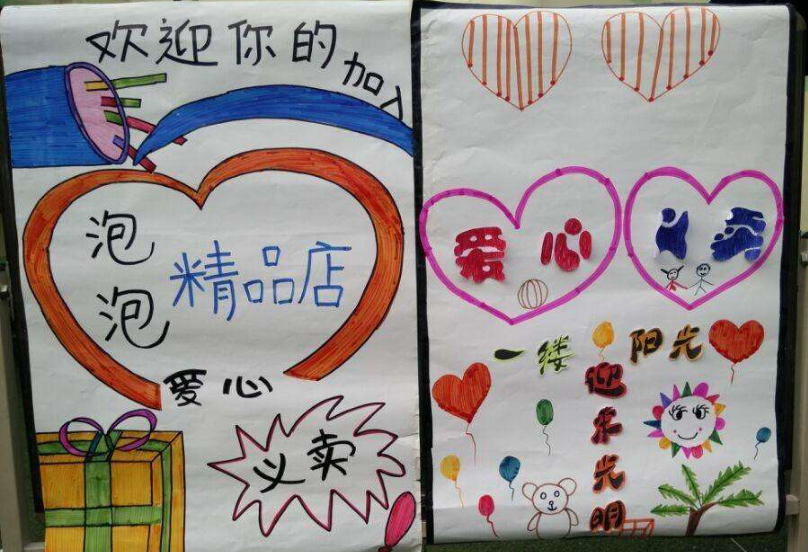 欢迎你的加入
泡泡
精品店
爱心
义卖
爱心
义卖
一缕阳光
迎来光明